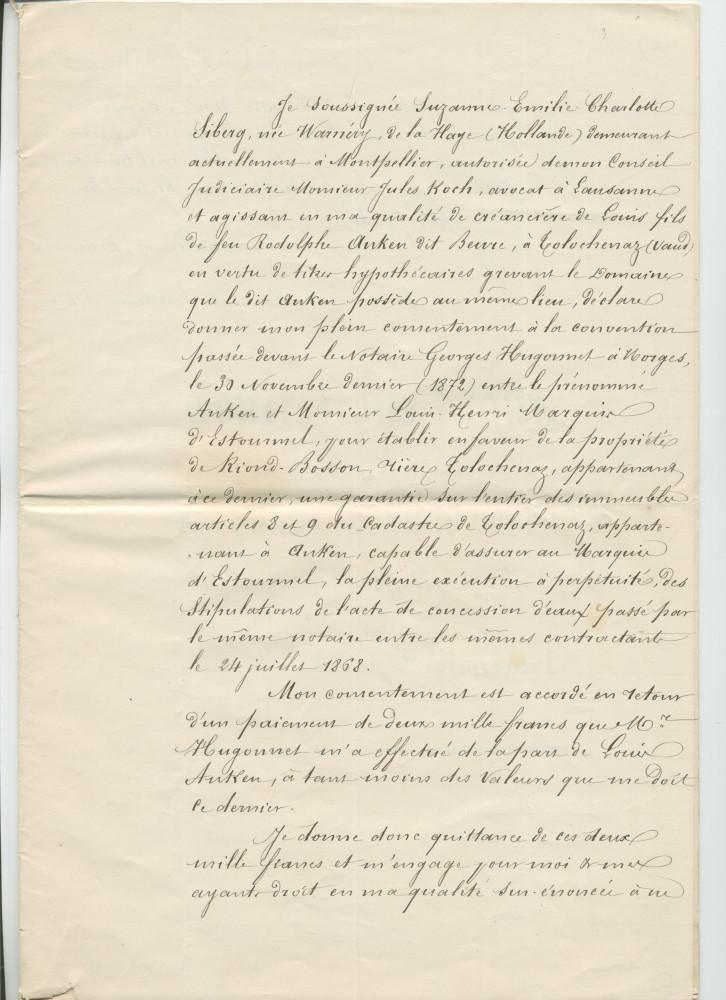 Je soussignée Suzanne Emilie Charlotte
Siberg, née Warnéry, de la Haye (Hollande) demeurant
actuellement à Montpellier, autorisée de mon Conseil
Judiciaire Monsieur Jules Koch, avocat à Lausanne
et agissant en ma qualité de créancière de Louis fils
de feu Rodolphe Anken dit Beuvre, à Tolochenaz (Vaud)
en vertu de titres hypothécaires grevant le Domaine
que le dit Anken possède au même lieu, déclare
donner mon plein consentement à la convention
passée devant le Notaire Georges Hugonnet à Morges,
le 30 Novembre dernier (1872) entre le prénommé
Anken et Monsieur Louis-Henri Marquis
d'Estourmel, pour établir en faveur de la propriété
de Riond-Bosson, rière Tolochenaz, appartenant
à ce dernier, une garantie sur l'entier des immeubles
articles 8 et 9 du Cadastre de Tolochenaz, apparte-
-nant à Anken, capable d'assurer au Marquis
d'Estourmel, la pleine exécution à perpétuité, des
Stipulations de l'acte de concession d'eaux passé par
le même notaire entre les mêmes contractants
le 24 juillet 1868.
Mon consentement est accordé en retour
d'un paiement de deux mille francs que Mr
Hugonnet m'a effectué de la part de Louis
Anken, à tant moins des valeurs que me doit
ce dernier.
Je donne donc quittance de ces deux
mille francs et m'engage pour moi & mes
ayants droit en ma qualité sus-énoncée à ne